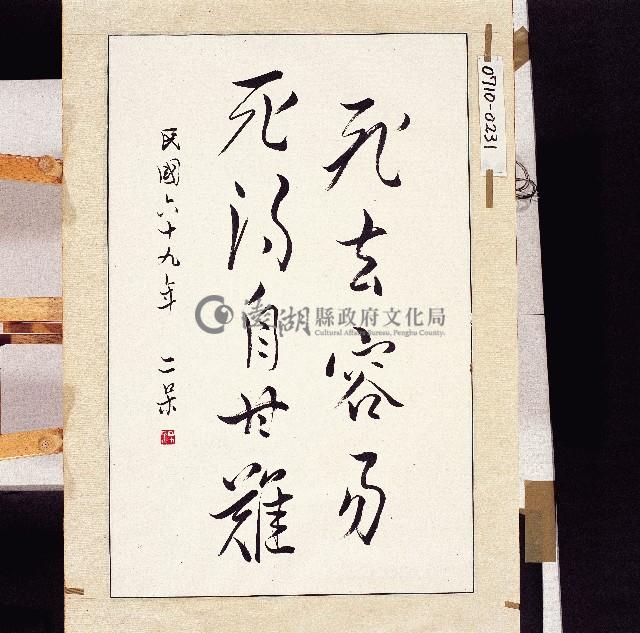 死去容易
死得自甘難
民國六十九年 二呆
0710-0231
澎湖縣政府文化局
Cultural Affairs Bureau, Penghu County.